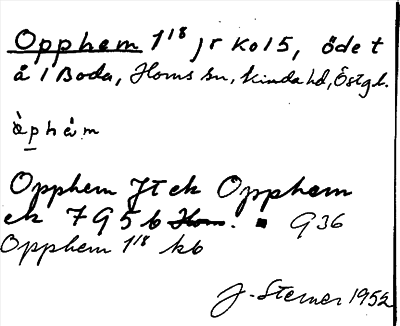 Opphem 1/8 jr ko 15, öde t
å 1 Boda, Horns sn, Kinda hd, Östgl.
àphèm
Opphem Jt ek Opphem
ek 7 G 5 b Horn. G 36
Opphem 1/8 kb
J. Sterner 1952